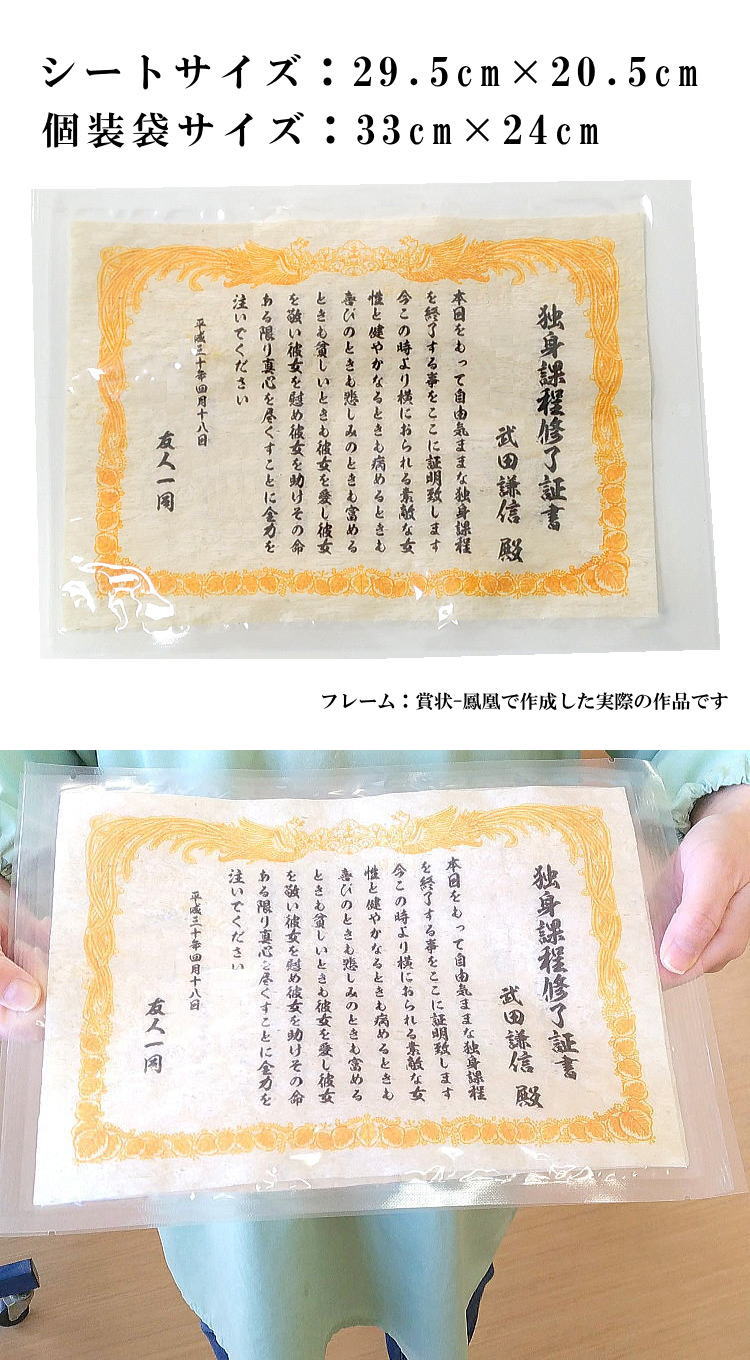 シートサイズ：29.5cm×20.5cm
個装袋サイズ：33cm×24cm
独身課程修了証書
武田謙信 殿
本日をもって自由気ままな独身課程
を終了する事をここに証明致します
今この時より横におられる素敵な女
性と健やかなるときも病めるときも
喜びのときも悲しみのときも富める
ときも貧しいときも彼女を愛し彼女
を敬い彼女を慰め彼女を助けその命
ある限り真心を尽くすことに全力を
注いでください
平成三十年四月十八日
友人一同
フレーム：賞状-鳳凰で作成した実際の作品です
独身課程修了証書
武田謙信 殿
本日をもって自由気ままな独身課程
を終了する事をここに証明致します
今この時より横におられる素敵な女
性と健やかなるときも病めるときも
喜びのときも悲しみのときも富める
ときも貧しいときも彼女を愛し彼女
を敬い彼女を慰め彼女を助けその命
ある限り真心を尽くすことに全力を
注いでください
平成三十年四月十八日
友人一同